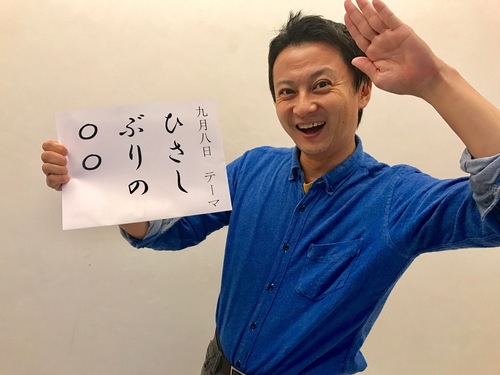 九月八日 テーマ
ひさし
ぶりの
○○